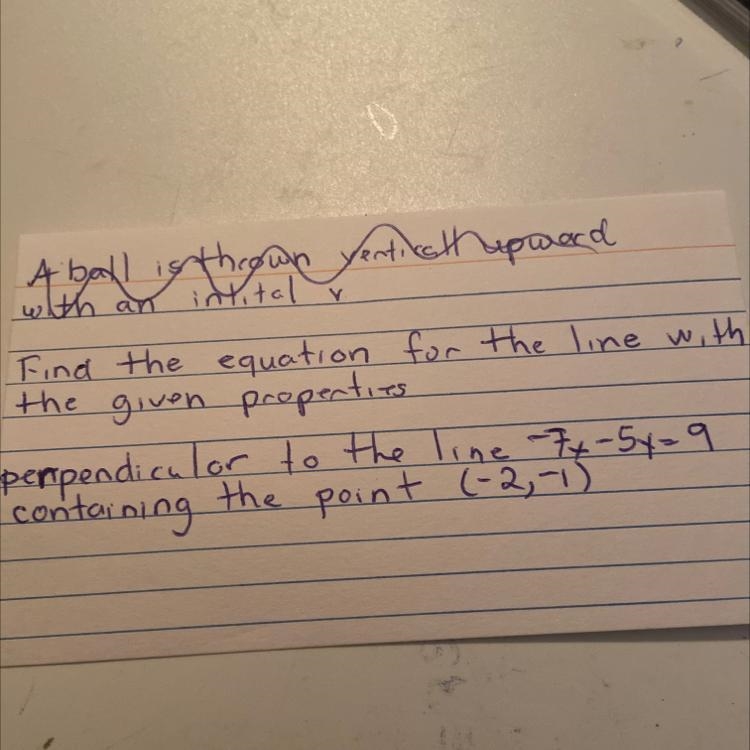 A ball is thrown vertically upward
with an intital v
Find the equation for the line with
the given properties
perpendicular to the line -7x-5y=9
containing the point (-2,-1)